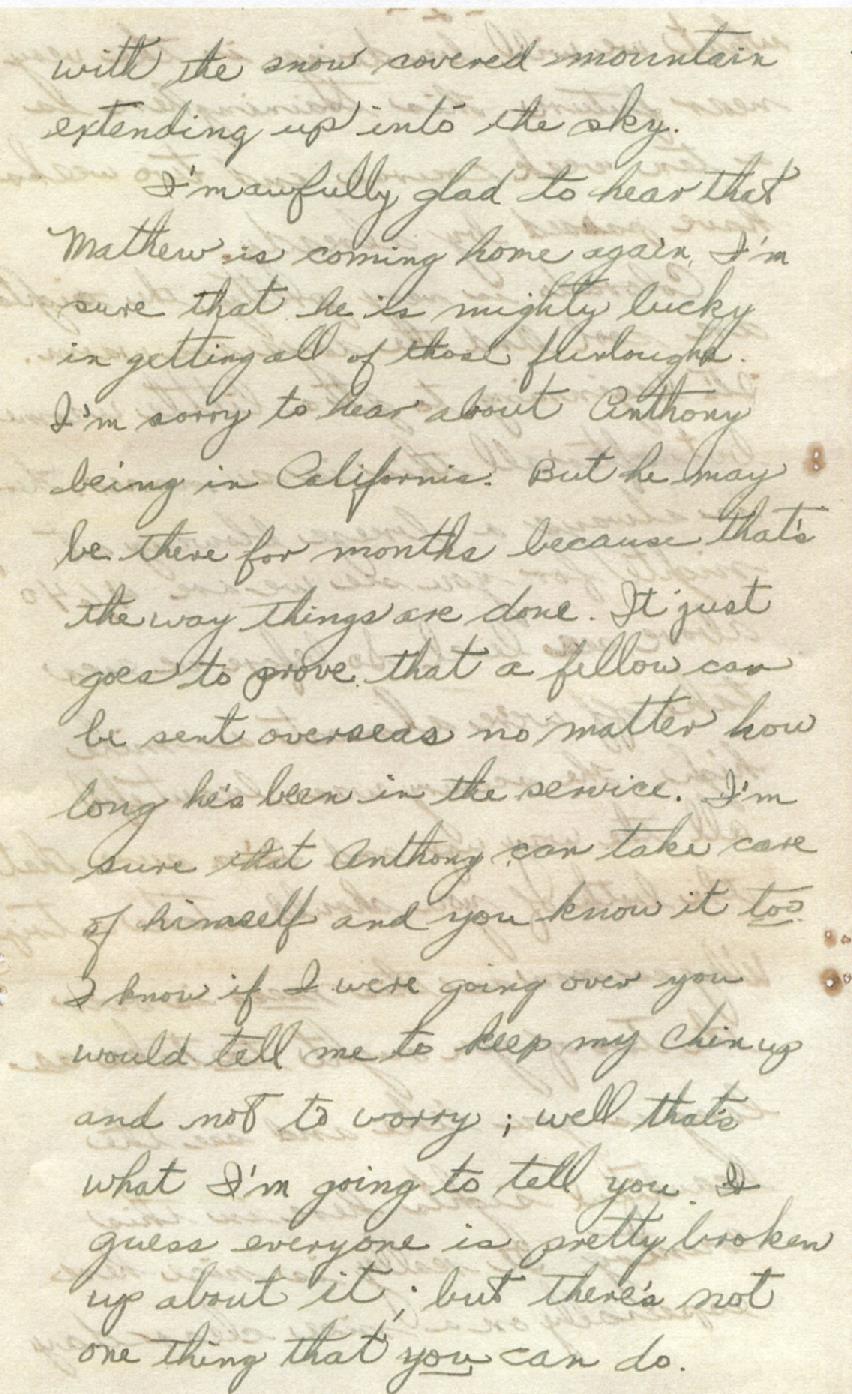 - 2 -
with the snow covered mountain
extending up into the sky.
I'm awfully glad to hear that
Mathew is coming home again. I'm
sure that he is mighty lucky
in getting all of those furloughs.
I'm sorry to hear about Anthony
being in California. But he may
be there for months because that's
the way things are done. It just
goes to prove that a fellow can
be sent overseas no matter how
long he's been in the service. I'm
sure that Anthony can take care
of himself and you know it too.
I know if I were going over you
would tell me to keep my chin up
and not to worry; well that's
what I'm going to tell you. I
guess everyone is pretty broken
up about it; but there's not
one thing that you can do.